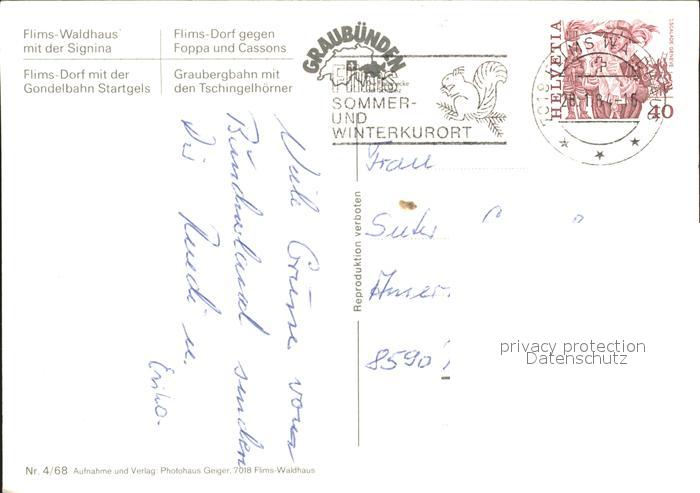 Flims-Waldhaus
mit der Signina
Flims-Dorf gegen
Foppa und Cassons
Flims-Dorf mit der
Gondelbahn Startgels
Graubergbahn mit
den Tschingelhörner
GRAUBÜNDEN
Flims
SOMMER-
UND
WINTERKURORT
HELVETIA
40
7018 FLIMS WALDHAUS
Viele Grüsse vom
Bündnerland senden
Dir Ruedi u.
Erika.
Reproduktion verboten
Frau
Suter
8590
privacy protection
Datenschutz
Nr. 4/68 Aufnahme und Verlag: Photohaus Geiger, 7018 Flims-Waldhaus